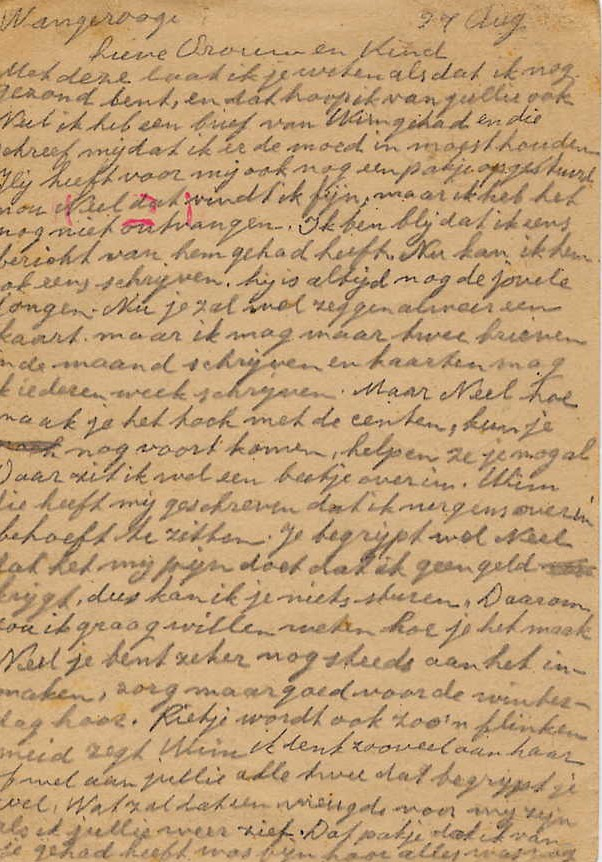 Wangerooge 27 Aug
Lieve Vrouw en Kind
Met deze laat ik je weten als dat ik nog
gezond bent, en dat hoop ik van jullie ook
Neel ik heb een brief van Wim gehad en die
schreef mij dat ik er de moed in moest houden
Hij heeft voor mij ook nog een pakje opgestuurd
nou Neel dat vindt ik fijn, maar ik heb het
nog niet ontvangen. Ik ben blij dat ik eens
bericht van hem gehad heeft. Nu kan ik hem
ok eens schrijven. hij is altijd nog de joviele
jongen. Nu je zal wel zeggen alweer een
kaart. maar ik mag maar twee brieven
in de maand schrijven en kaarten mag
k iederen week schrijven. Maar Neel hoe
maak je het toch met de centen, kun je
nog voort komen, helpen ze je nog al
Daar zit ik wel een beetje over in. Wim
die heeft mij geschreven dat ik nergens over in
behoeft te zitten. Je begrijpt wel Neel
dat het mij pijn doet dat ik geen geld
krijgt, dus kan ik je niets sturen. Daarom
zou ik graag willen weten hoe je het maak
Neel je bent zeker nog steeds aan het in-
maken, zorg maar goed voor de winter-
dag hoor. Rietje wordt ook zoo'n flinken
meid zegt Wim ik denk zooveel aan haar
f wel aan jullie alle twee dat begrijpt je
wel. Wat zal dat een vreugde voor mij zijn
als ik jullie weer zief. Dat pakje dat ik van
je gehad heeft was fijn hoor alles was nog